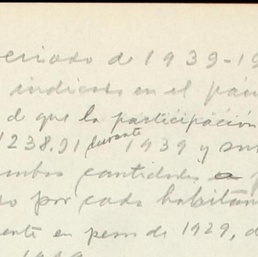 periodo de 1939-19
indicados en el pár
de que la participación
1238.91 durante 1939 y su
ambas cantidades a
por cada habitan
ente en pesos de 1929, d